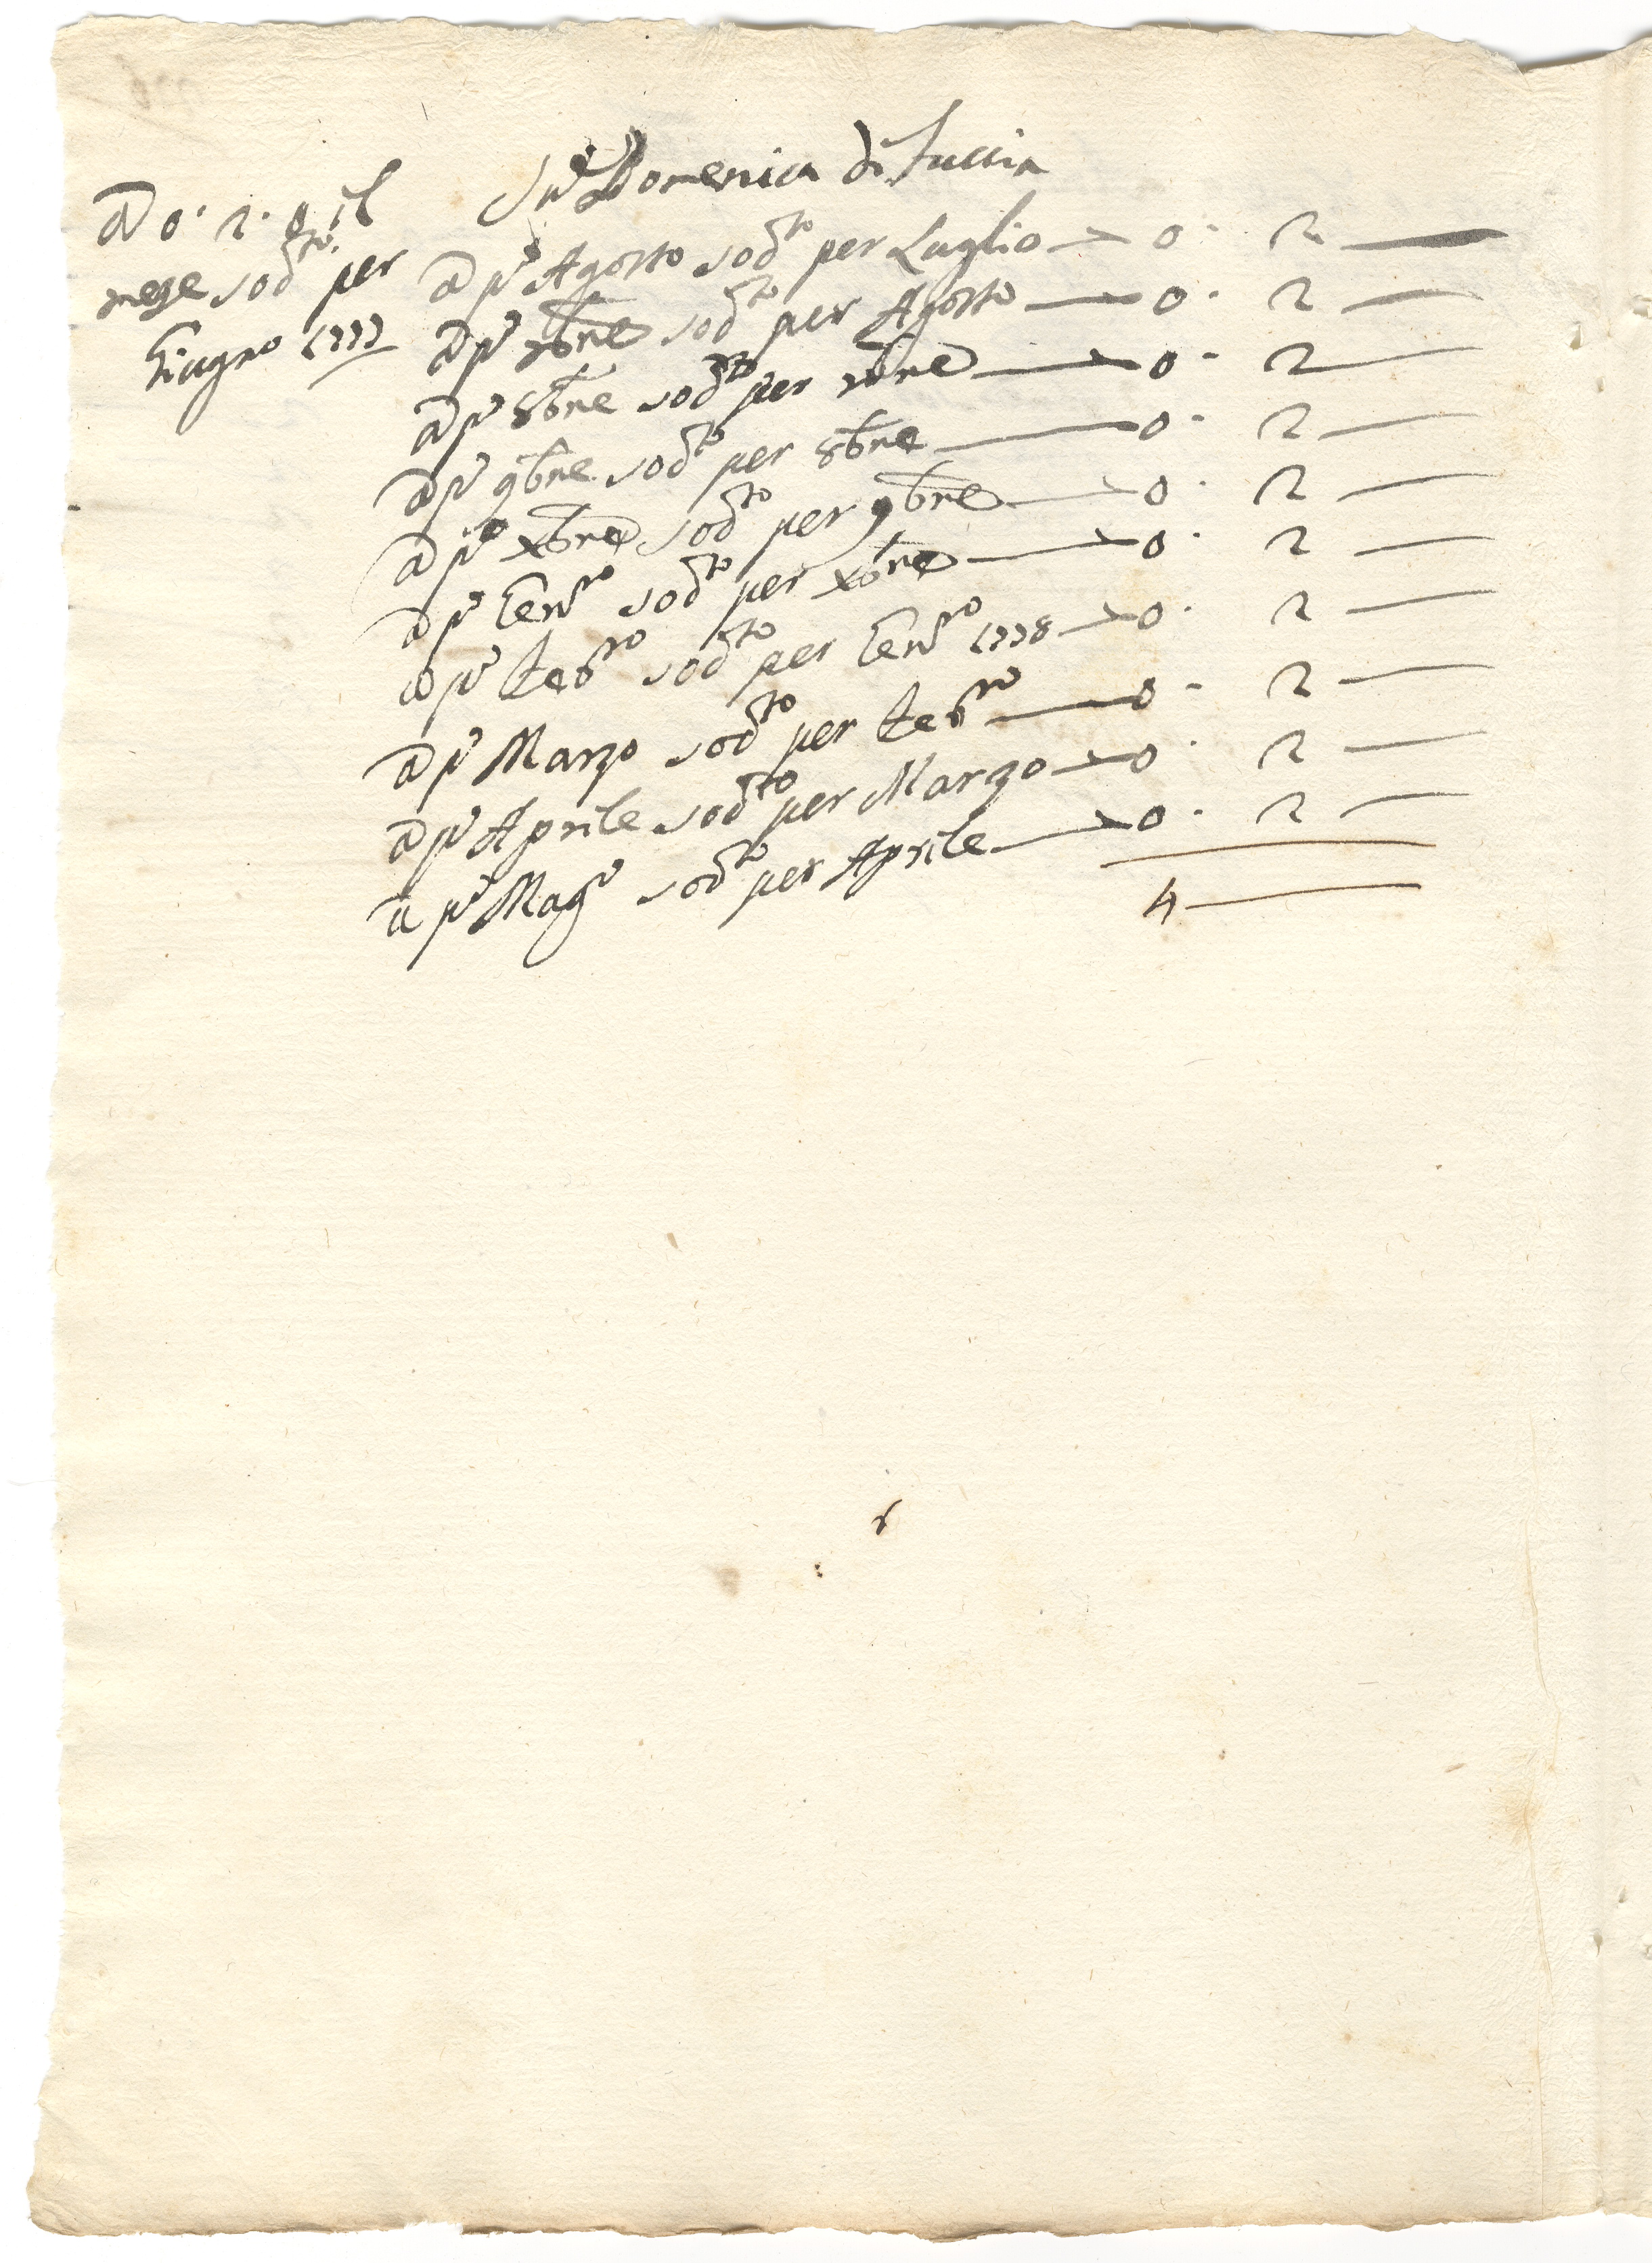 Sr̃ Domenica di Tuccia
a 0. 2. 0 il
mese sodto per
Giugno 1777
a pº Agosto sodto per Luglio — 0. 2 —
a pº 7bre sodto per Agosto — 0. 2 —
a pº 8bre sodto per 7bre — 0. 2 —
a pº 9bre sodto per 8bre — 0. 2 —
a pº Xbre sodto per 9bre — 0. 2 —
a pº Genro sodto per Xbre — 0. 2 —
a pº Febro sodto per Genro 1778 — 0. 2 —
a pº Marzo sodto per Febro — 0. 2 —
a pº Aprile sodto per Marzo — 0. 2 —
a pº Magº sodto per Aprile — 0. 2 —
4 —